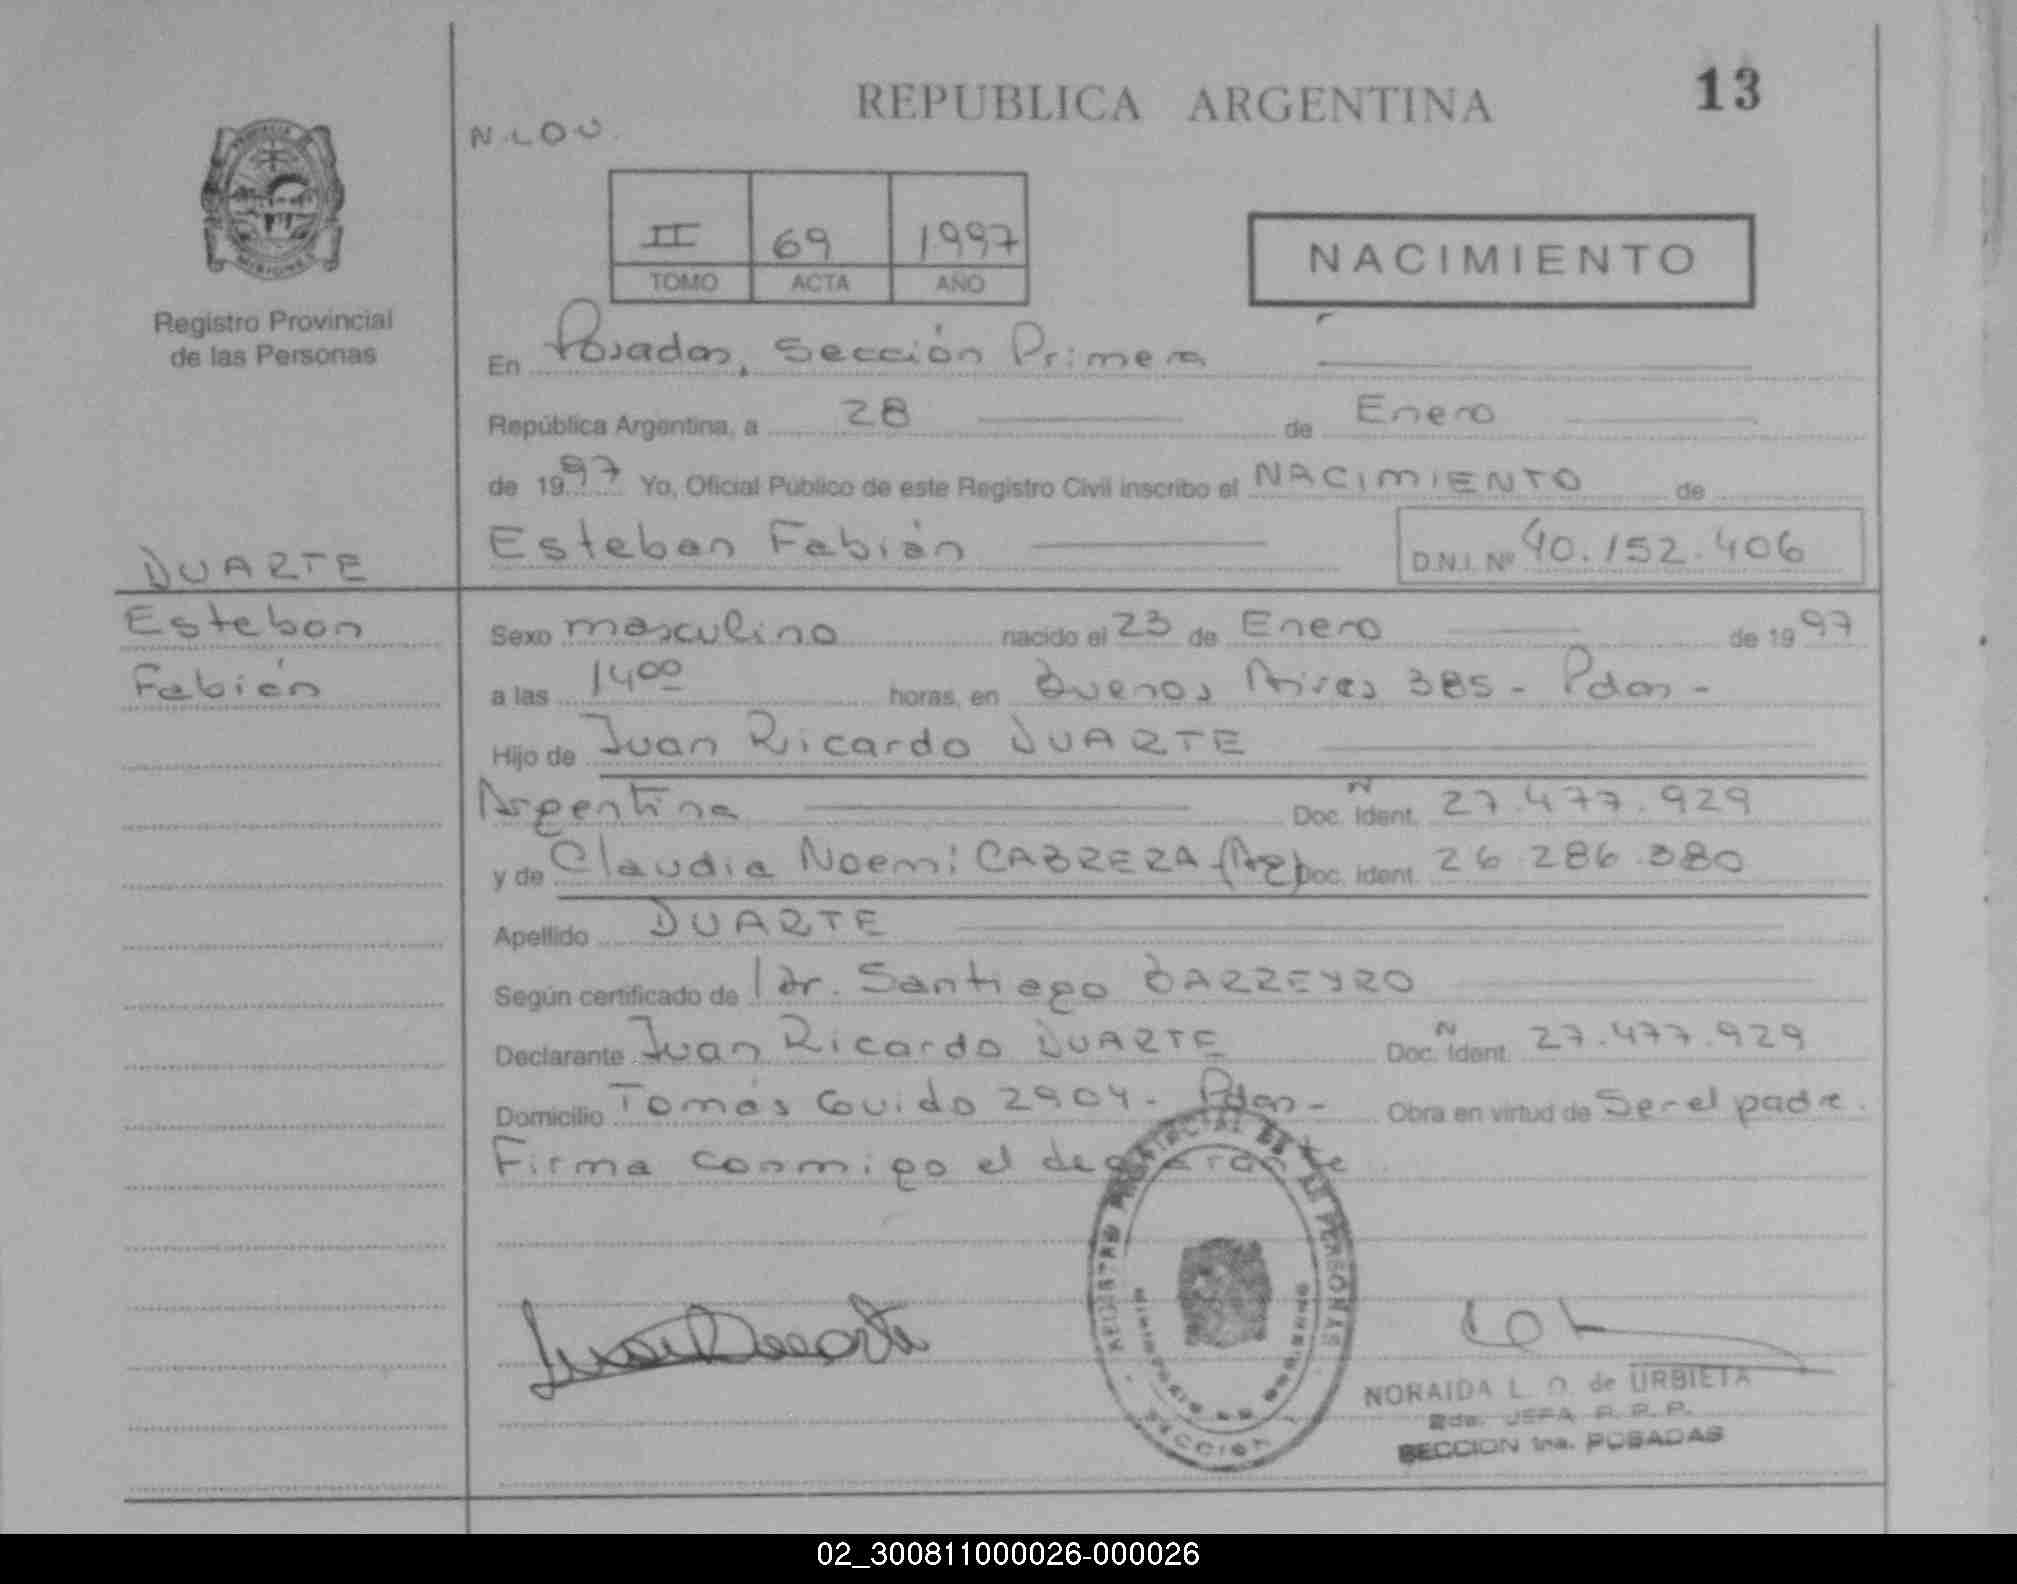 REPUBLICA ARGENTINA
13
N.LOU.
PROVINCIA
MISIONES
Registro Provincial
de las Personas
II 69 1997
TOMO ACTA AÑO
NACIMIENTO
En Posadas, Sección Primera
República Argentina, a 28 de Enero
de 1997 Yo, Oficial Público de este Registro Civil inscribo el NACIMIENTO de
Esteban Fabián
D.N.I. Nº 40.152.406
DUARTE
Esteban
Fabián
Sexo masculino nacido el 23 de Enero de 1997
a las 14 00 horas, en Buenos Aires 385 - Pdas -
Hijo de Juan Ricardo DUARTE
Argentina Doc. Ident. Nº 27.477.929
y de Claudia Noemi CABRERA (Ar) Doc. Ident. 26.286.380
Apellido DUARTE
Según certificado de Dr. Santiago BARREYRO
Declarante Juan Ricardo DUARTE Doc. Ident. Nº 27.477.929
Domicilio Tomás Guido 2904 - Pdas - Obra en virtud de Ser el padre.
Firma conmigo el declarante
REGISTRO PROVINCIAL DE LAS PERSONAS
MINISTERIO DE GOBIERNO
SECCION 1
Juan Duarte
NORAIDA L. O. de URBIETA
2da. JEFA R. P. P.
SECCION 1ra. POSADAS
02_300811000026-000026